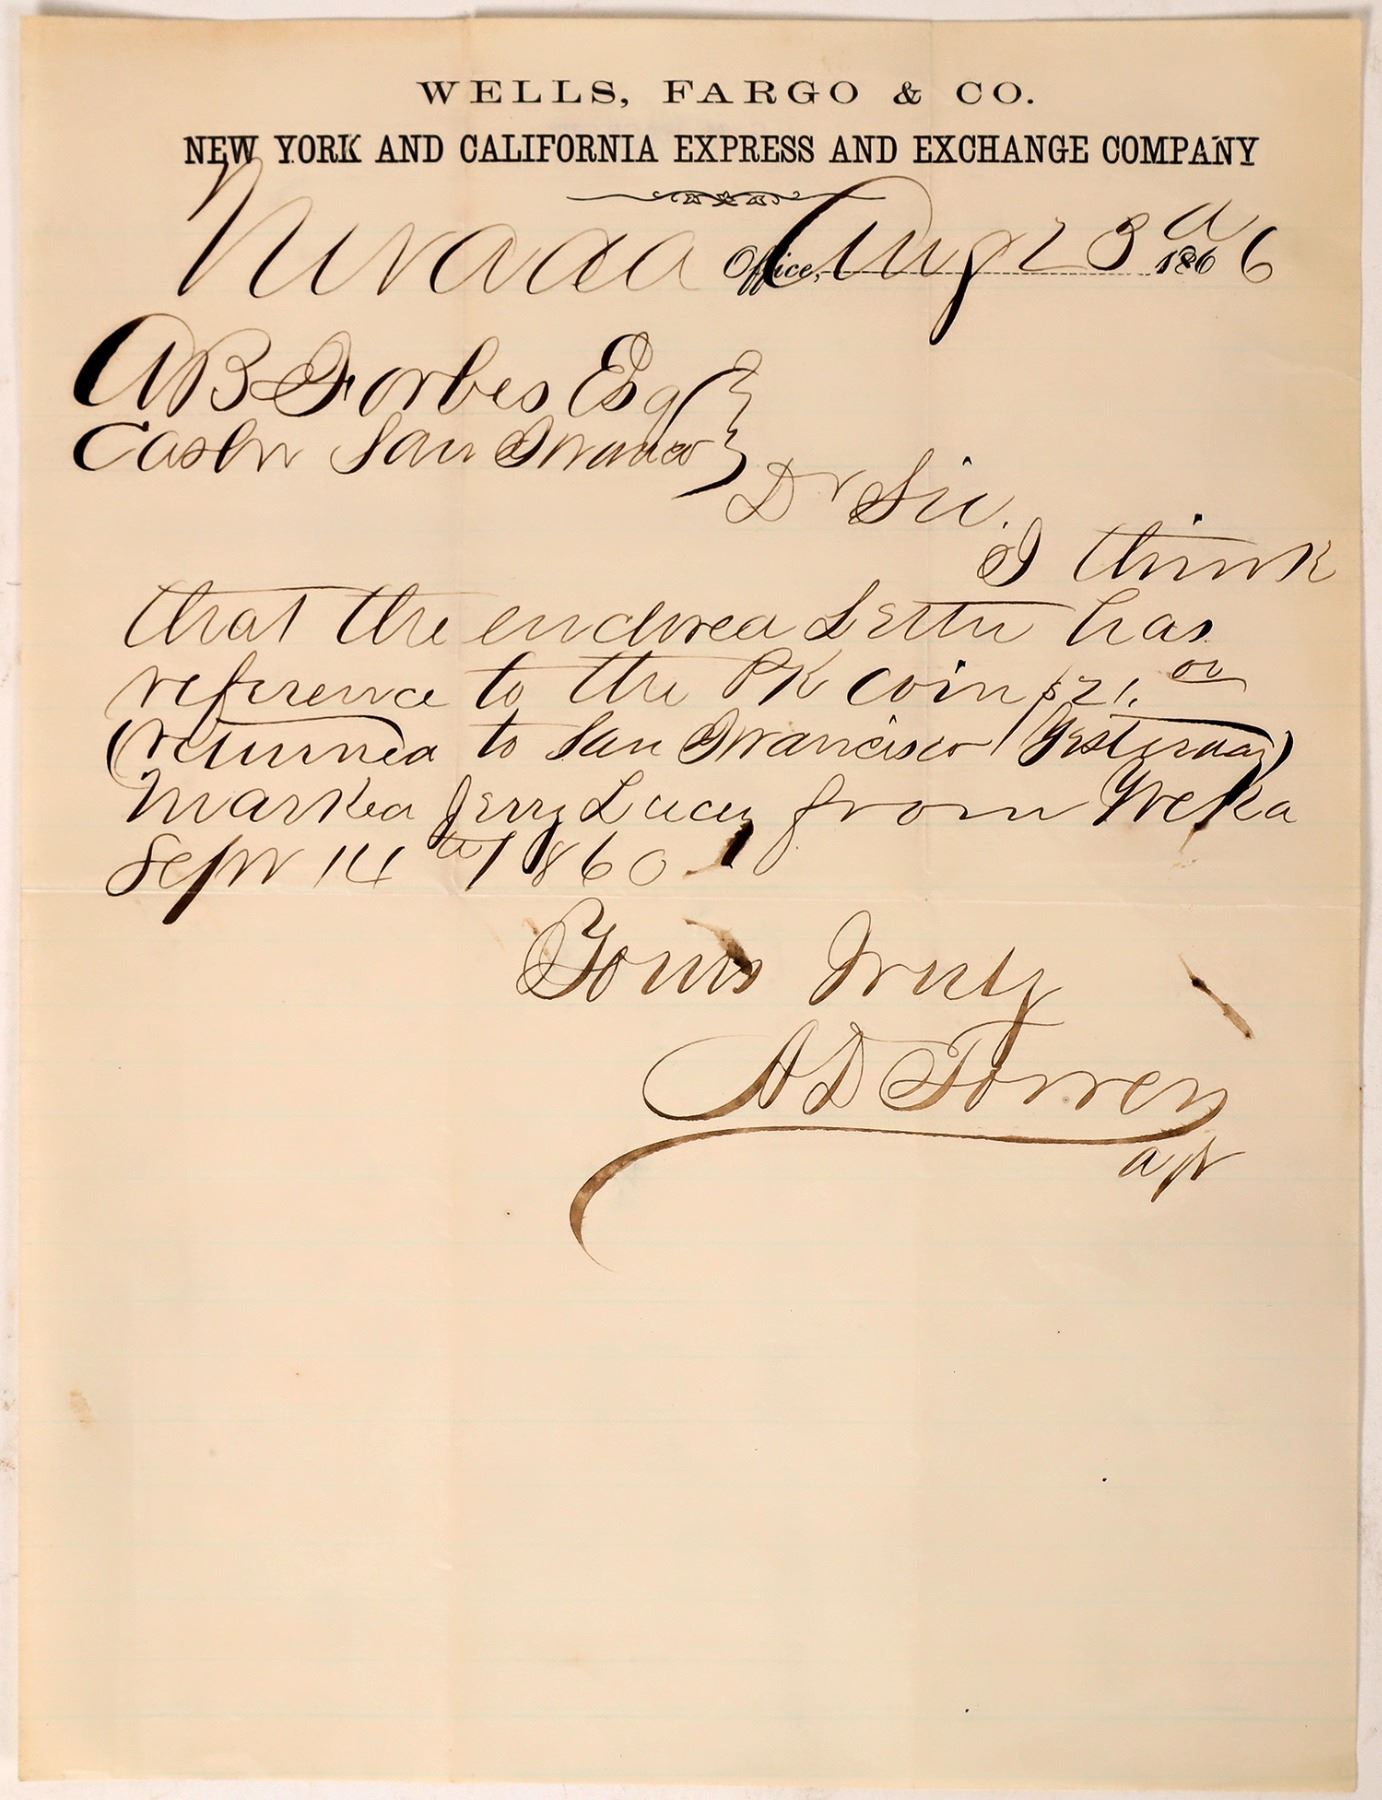 WELLS, FARGO & CO.
NEW YORK AND CALIFORNIA EXPRESS AND EXCHANGE COMPANY
Nevada Office, Aug 23d 1866
A B Forbes Esq
Cashr San Francisco
Dr Sir.
I think
that the enclosed Letter has
reference to the PK coin $21.00
(returned to San Francisco Yesterday)
Marked Jerry Lucey from Yreka
Sepr 14th 1860
Yours Truly
A D Torrey
agt